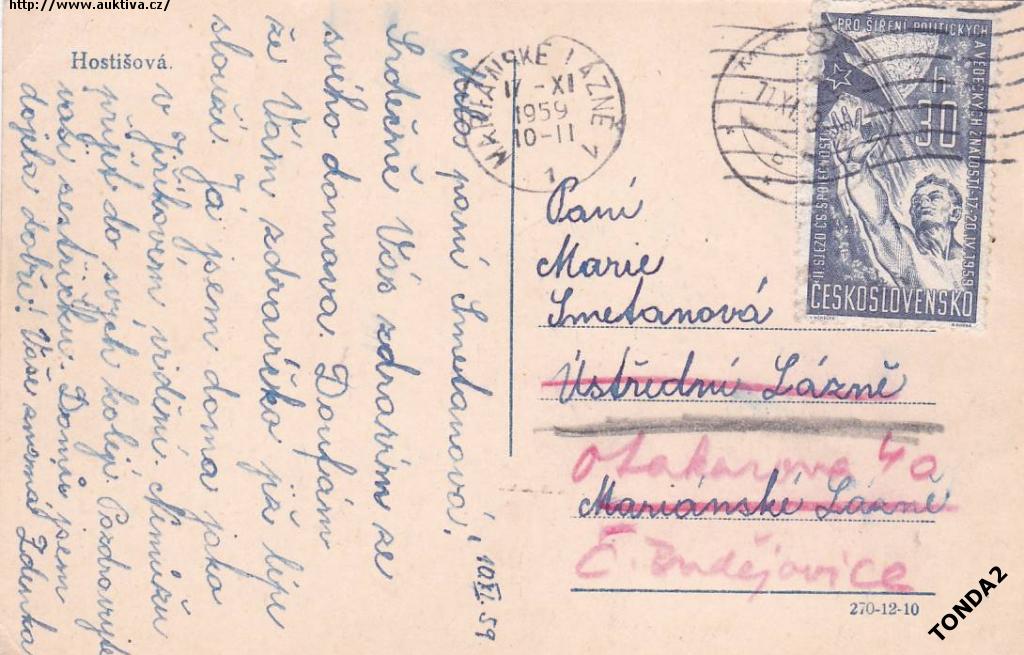 http://www.auktiva.cz/
Hostišová.
10.XI.59
Milá paní Smetanová!
Srdečně Vás zdravím ze
svého domova. Doufám
že Vám zdravíčko již lépe
slouží. Já jsem doma jako
v Jiříkovém vidění. Nemůžu
přijít do svých kolejí. Pozdravujte
vaši sestřičku. Domů jsem
dojela dobře! Vaše známá Zdenka
MARIÁNSKÉ LÁZNĚ 1
17-XI
1959
10-11
1
PRO ŠÍŘENÍ POLITICKÝCH A VĚDECKÝCH ZNALOSTÍ-17.-20.IV.1959
II. SJEZD ČS. SPOLEČNOSTI
h
30
ČESKOSLOVENSKO
Paní
Marie
Smetanová
Ústřední Lázně
Otakarova 4a
Mariánské Lázně
Č. Budějovice
270-12-10
TONDA2